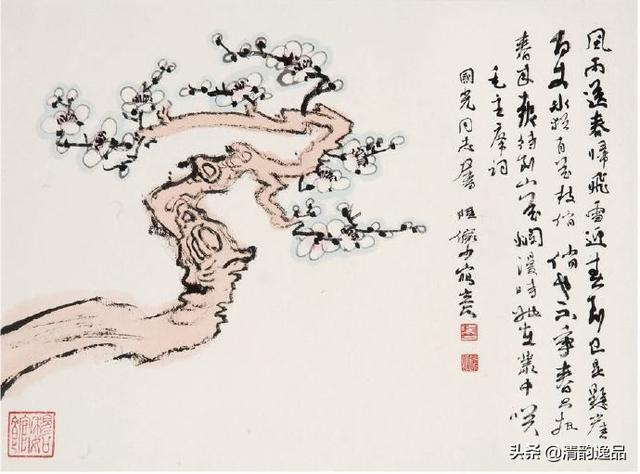 風雨送春歸飛雪迎春到已是懸崖
百丈冰猶有花枝俏 俏也不爭春只把
春來報待到山花爛漫時她在叢中笑
毛主席詞
國光同志屬 陸儼少寫意
头条 @清韵逸品